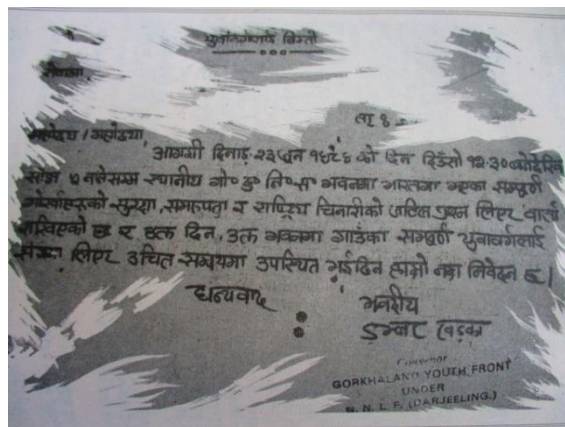 सेवामा,
महोदय / महोदया,
आगामी दिनाङ्क २३ जुन १९८६ को दिन दिउँसो १२.३० बजेदेखि
साँझ ५ बजेसम्म स्थानीय गो० दु० नि० स० भवनमा भारतमा भएका सम्पूर्ण
गोर्खाहरूको सुरक्षा, समानता र राष्ट्रिय चिनारीको जटिल प्रश्न लिएर वार्ता
राखिएको छ र उक्त दिन, उक्त भवनमा गाउँका सम्पूर्ण युवावर्गलाई
लिएर उचित समयमा उपस्थित गरिदिन हाम्रो नम्र निवेदन छ।
धन्यवाद
भवदीय
डम्बर खड्का
Convenor
GORKHALAND YOUTH FRONT
UNDER
G. N. L. F. (DARJEELING.)